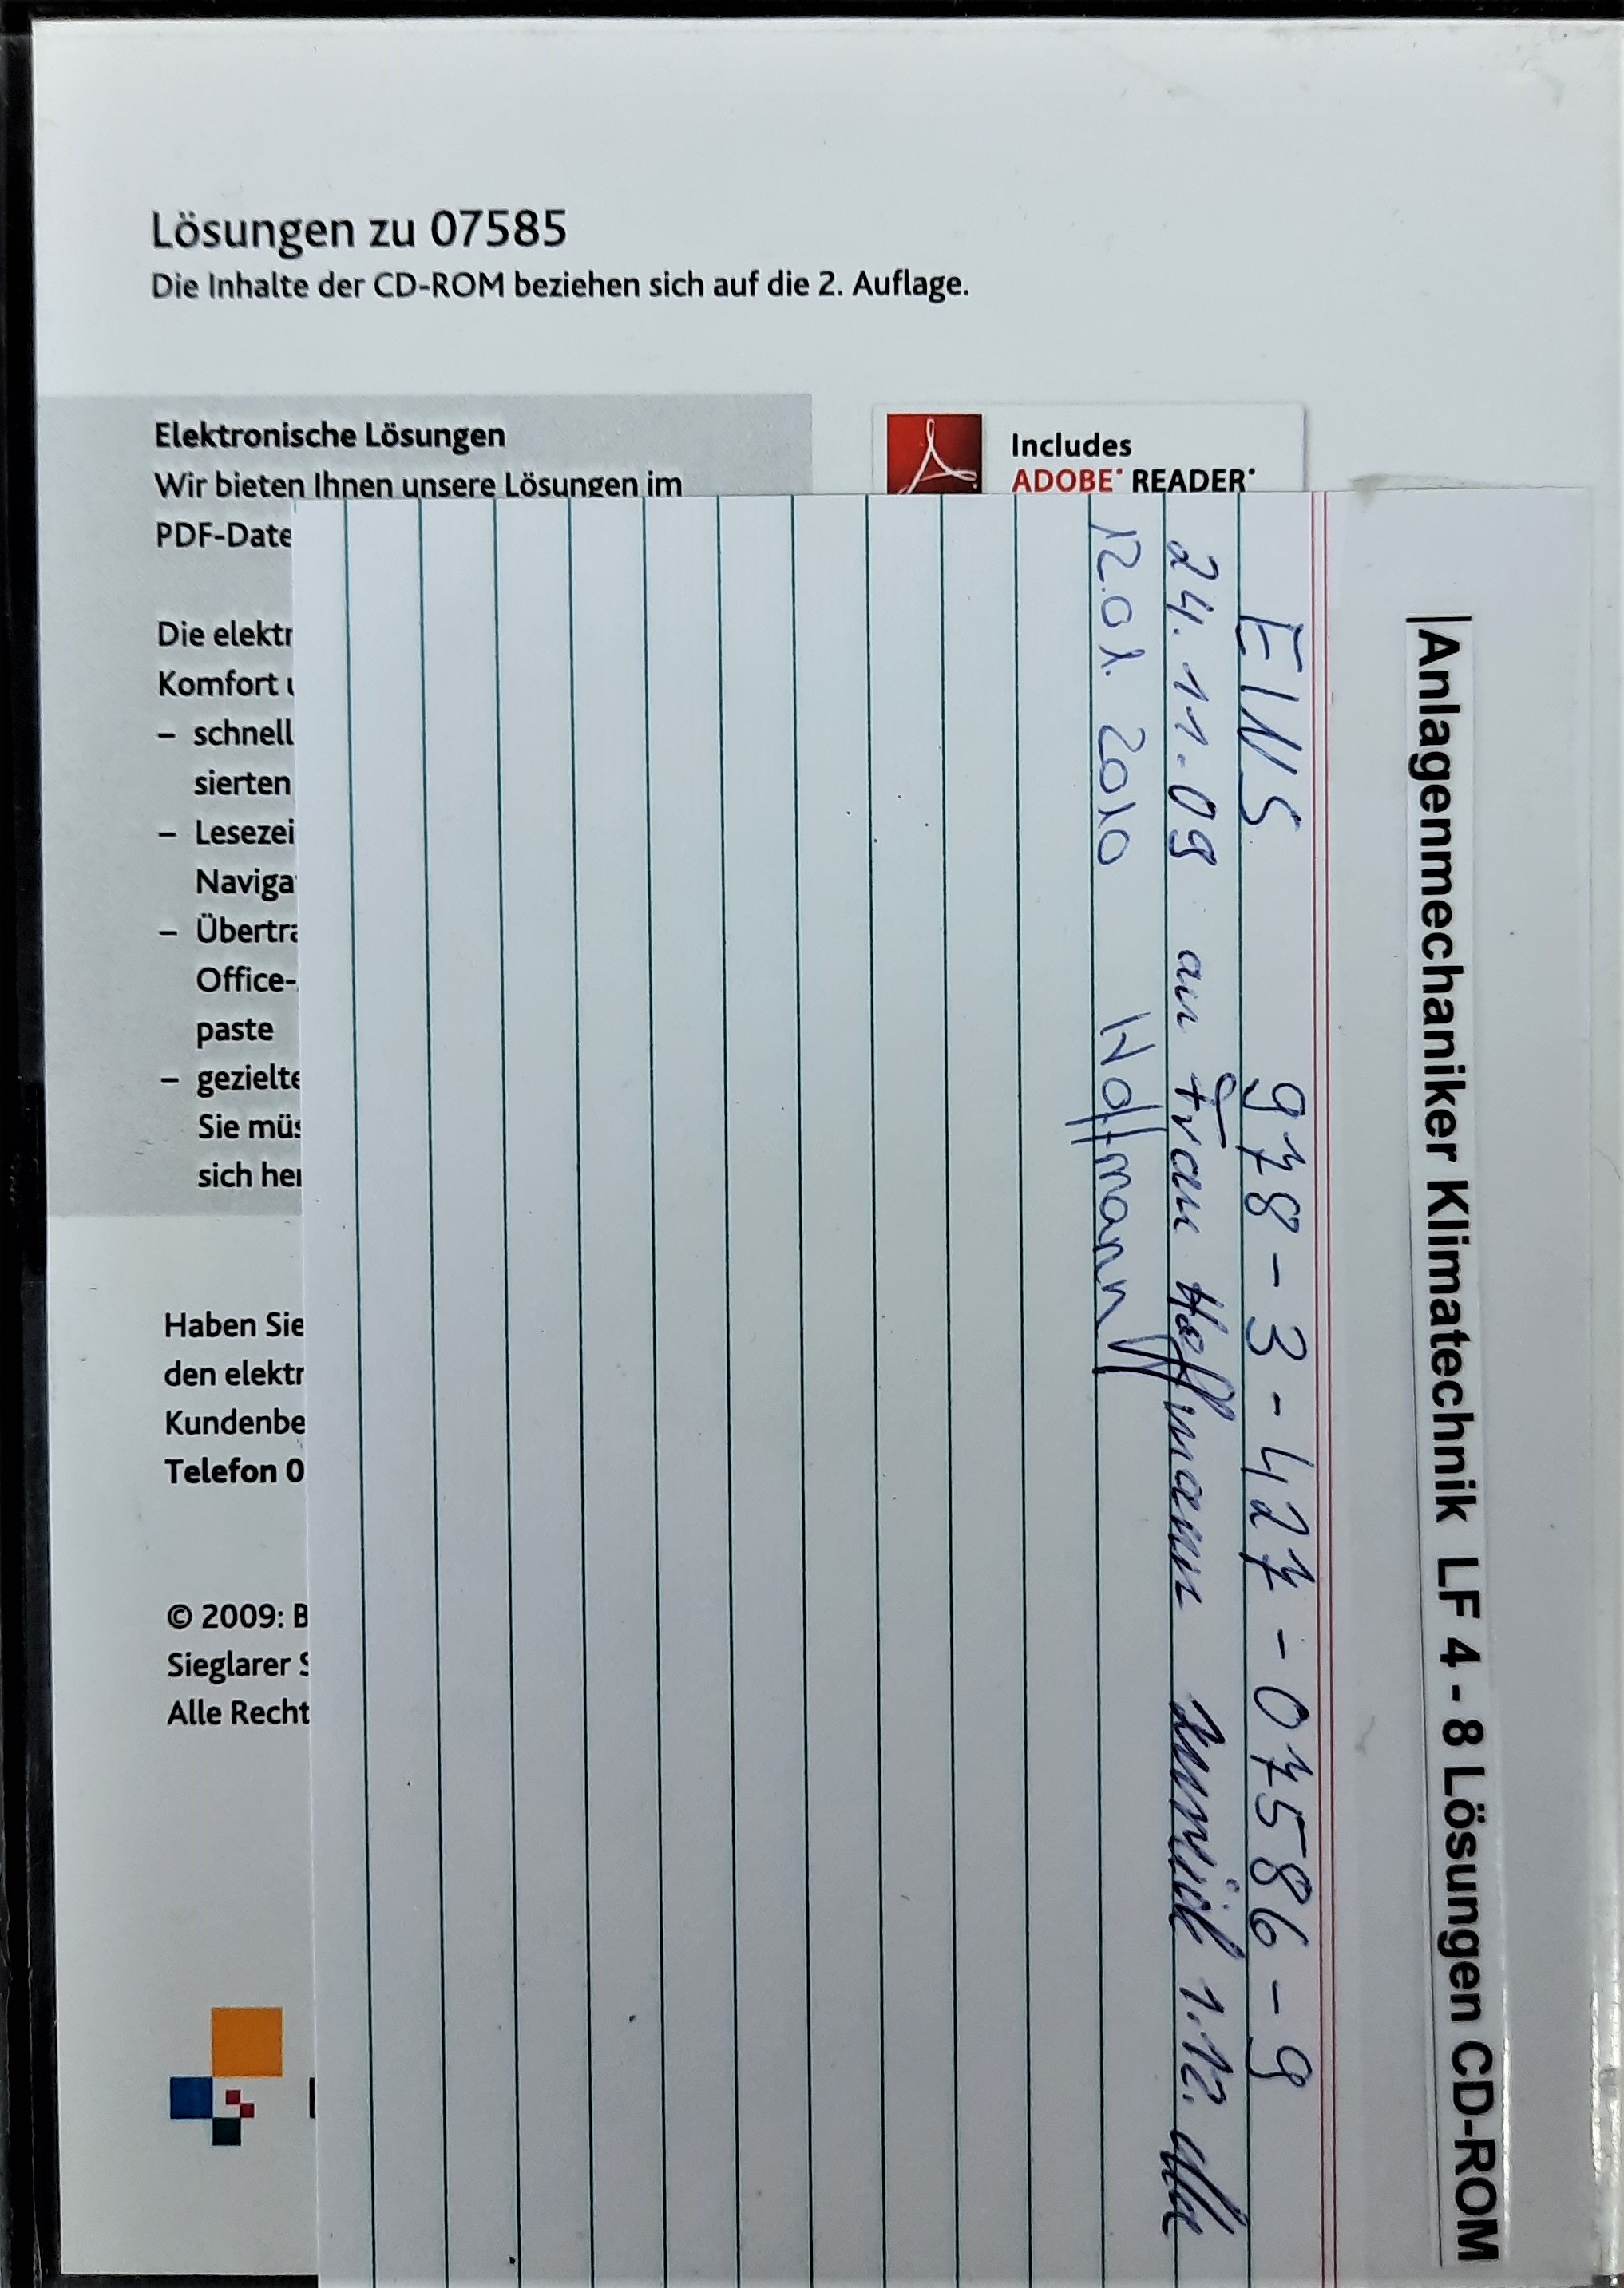 Lösungen zu 07585
Die Inhalte der CD-ROM beziehen sich auf die 2. Auflage.
Elektronische Lösungen
Wir bieten Ihnen unsere Lösungen im
PDF-Date
Die elektr
Komfort
– schnell
sierten
– Lesezei
Naviga
– Übertra
Office-
paste
– gezielte
Sie müs
sich her
Haben Sie
den elektr
Kundenbe
Telefon 0
© 2009: B
Sieglarer S
Alle Recht
Includes
ADOBE READER
Anlagenmechaniker Klimatechnik LF 4 - 8 Lösungen CD-ROM
EINS 978-3-427-07586-9
24.11.09 an Frau Hoffmann zurück 1.12.
12.01.2010 Hoffmann